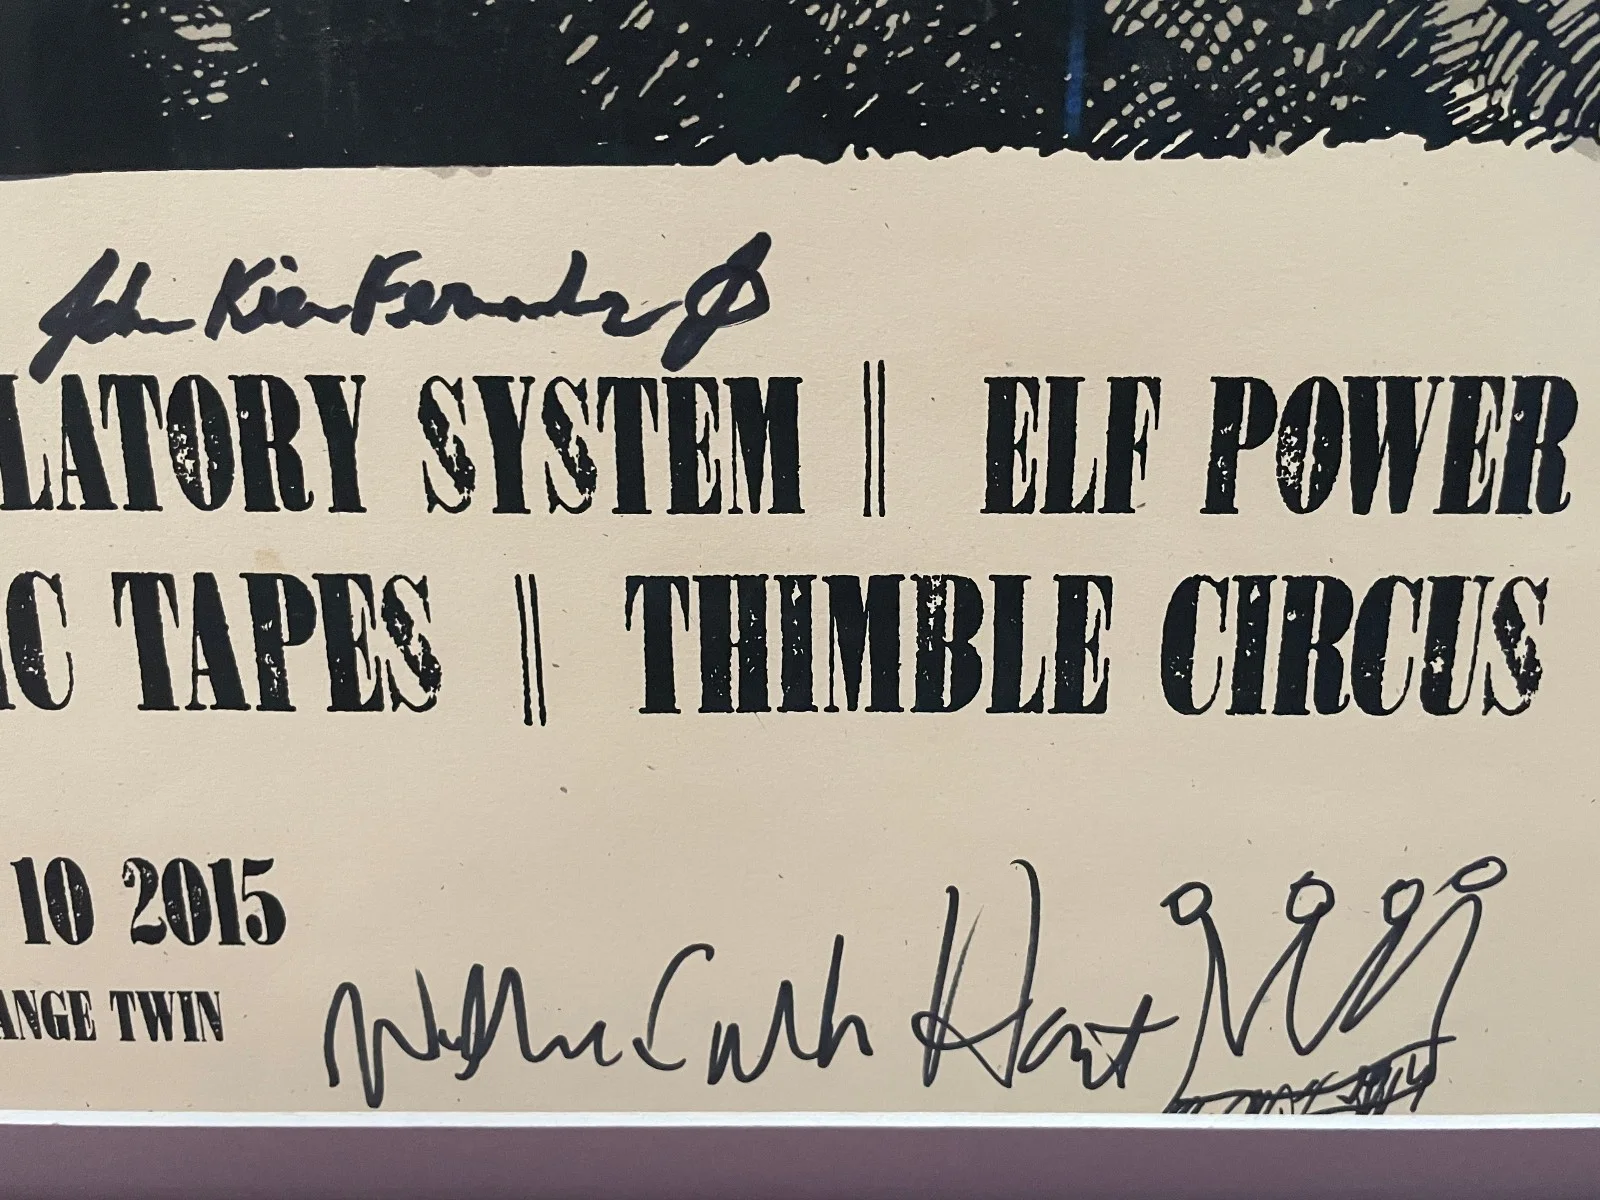 John Kiran Fernandes
LATORY SYSTEM || ELF POWER
IC TAPES || THIMBLE CIRCUS
10 2015
ANGE TWIN
William Cullen Hart